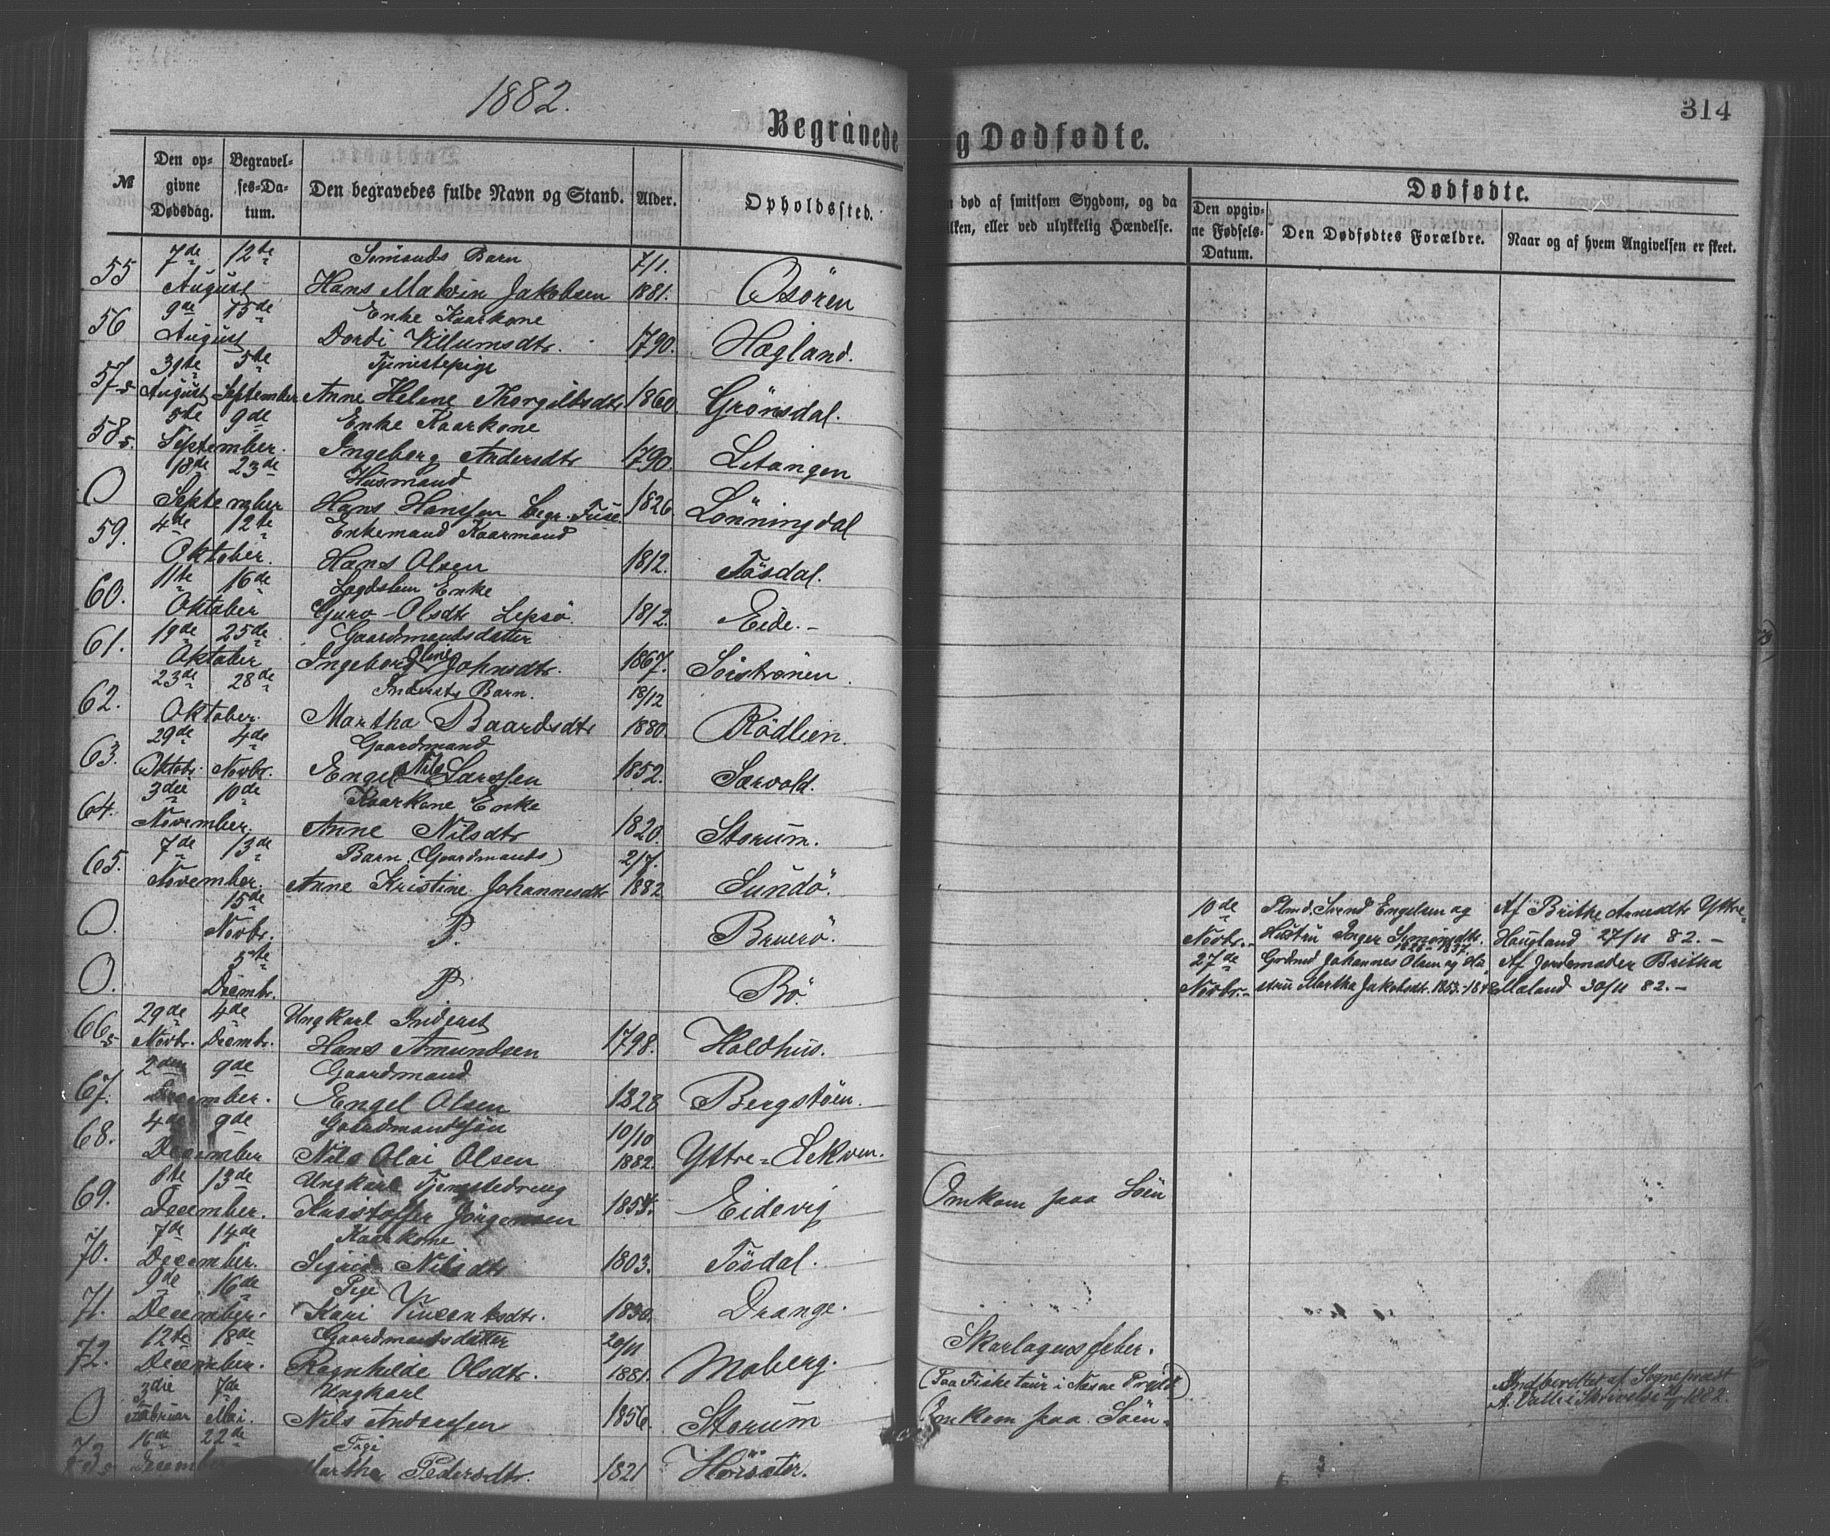 1882.
314
Begravede og Dødfødte.
№
Den opgivne Dødsdag.
Begravelses-Datum.
Den begravedes fulde Navn og Stand.
Alder.
Opholdssted.
død af smitsom Sygdom, og da
ilken, eller ved ulykkelig Hændelse.
Dødfødte.
Den opgivne Fødsels-Datum.
Den Dødfødtes Forældre.
Naar og af hvem Angivelsen er skeet.
7de 12te Sömands Barn 7/1
55 August Hans Malvin Jakobsen 1881. Osören
9de 15de Enke Kaarkone
56 August Dordi Villumsdtr. 1790. Hægland.
5te Tjenistepige
57 s August September Anne Helene Thorgilsdtr 1860. Grönsdal.
5te 9de Enke Kaarkone
58 s. September. Ingeborg Andersdtr 1790.
18de 23de Husmand
O September Hans Hanssen begr. Fuse 1826. Lönningdal
4de 12te Enkemand Kaarmand
59. Oktober. Hans Olsen 1812. Tösdal.
11te 16de Enke
60. Oktober Guro Olsdtr Lepsö. 1812. Eide.-
19de 25de Gaardmandsdatter
61. Oktober Ingeborg Oline Johnsdtr. 1867.
23de 28de Indersts Barn. 18/12
62. Oktober. Martha Baardsdtr 1880. Rödlien.
29de 4de Gaardmand
63. Oktobr. Novbr. Engel Nils Larssen 1852. Særvold.
3die 10de Kaarkone Enke
64. November. Anne Nilsdtr 1820. Storum.
7de 13de Barn (Gaardmands) 2/7.
65. November. Anne Kristine Johannesdtr 1882. Sundö.
15de 10de Svend Engelsen og Af Brithe Arnesdtr Yttre-
O. Novbr. P. Bruerö. Novbr.- Hustru Inger Simonsdtr. Haugland 27/11 82.-
5te 27de Johannes Olsen og Hu Af Jordemoder Britha
O. Decembr. P Bö Novbr.- stru Martha Jakobsdtr. 1853- Maland 30/11 82.-
29de 4de Ungkarl Inderst
66 s Novbr. Decembr. Hans Amundsen 1798. Holdhus.
2den 9de Gaardmand
67. December. Engel Olsen 1828 Bergstöen.
4de 9de Gaardmandssön 10/10
68. December Nils Olai Olsen 1882. Yttre-Øekven.
6te 13de Ungkarl Tjenestedreng
69. December. Kristoffer Jörgensen Eidevig Omkom paa Söen
7de 14de Kaarkone
70. December. Sigrid Nilsdtr 1803. Tösdal.
9de 16de Pige
71. December. Kari Vincentsdtr. 1830. Drange.
12te 18de Gaardmandsdatter 20/11
72. December. Ragnhilde Olsdtr. 1881. Moberg. Skarlagensfeber.
3die 7de Ungkarl (Paa Fisketur i Indberettet af Sogneprest
O Februar Mai. Nils Anderssen 1856. Storum Omkom paa Söen- 1882.
16de 22de Pige
73 s December Martha Pedersdtr. 1821